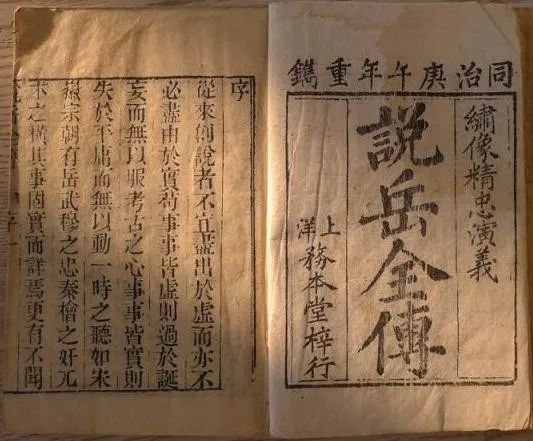 同治庚午年重鐫
繡像精忠演義
說岳全傳
上洋
務本堂梓行
序
從來創說者不宜盡出於虛而亦不
必盡由於實苟事事皆虛則過於誕
妄而無以服考古之心事事皆實則
失於平庸而無以動一時之聽如宋
徽宗朝有岳武穆之忠秦檜之奸兀
朮之橫其事固實而詳焉更有不聞